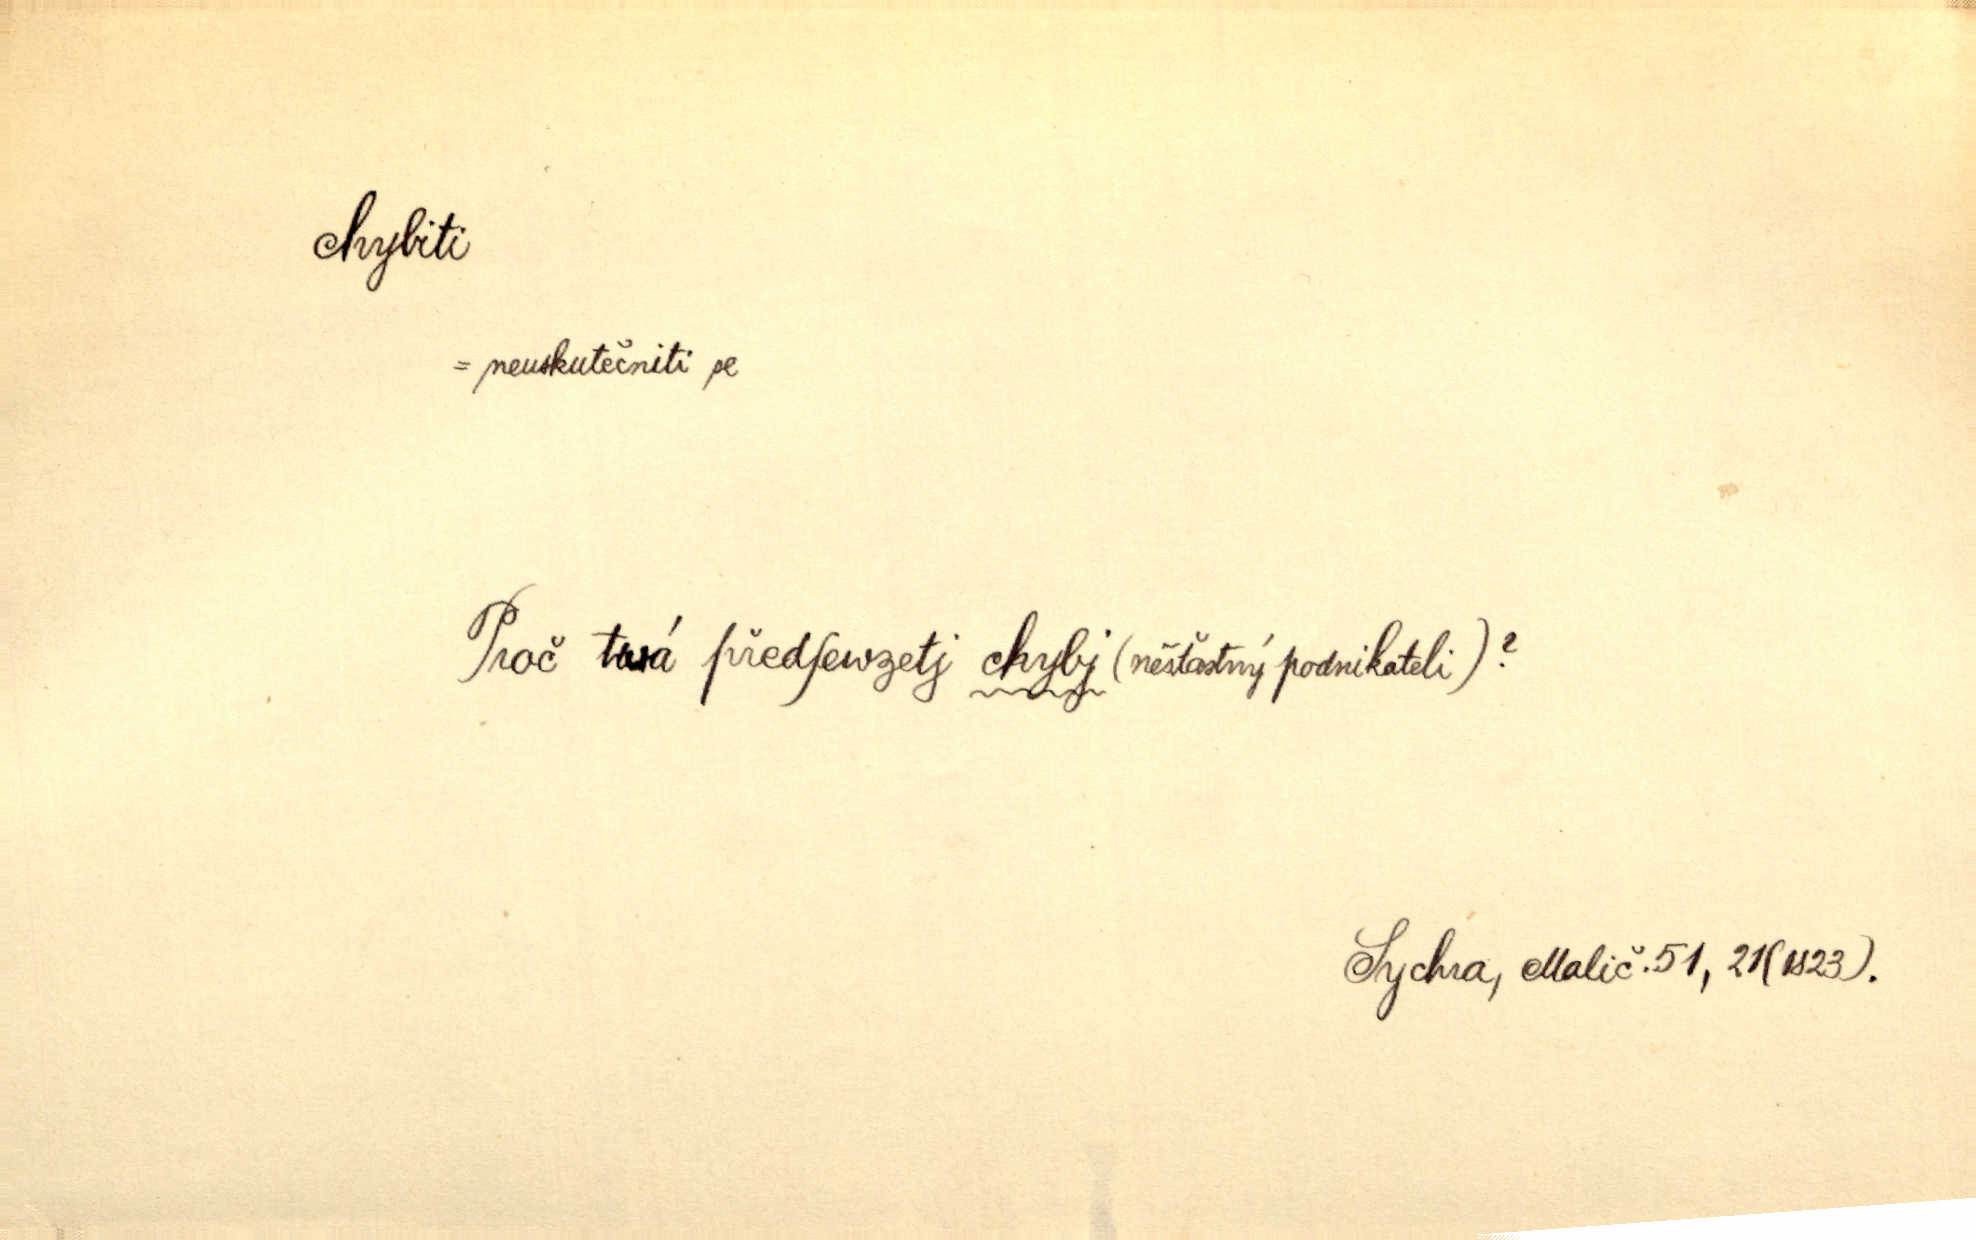 chybiti
= neuskutečniti se
Proč twá předsewzetj chybj (nešťastný podnikateli)?
Sychra, Malič. 51, 21(1823).